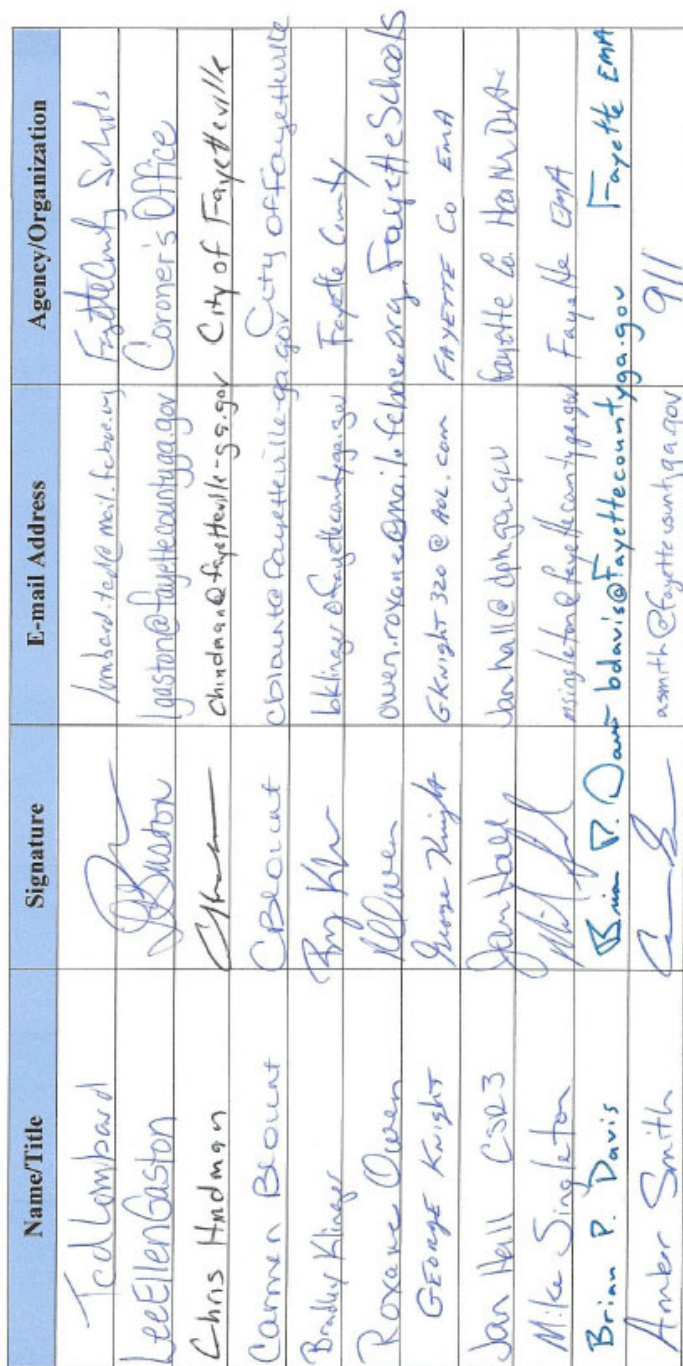 Name/Title Signature E-mail Address Agency/Organization
Ted Lombard lombard.ted@mail.fcboe.org Fayette County Schools
LeeEllenGaston LEGaston lgaston@fayettecountyga.gov Coroner's Office
Chris Hindman chindman@fayetteville-ga.gov City of Fayetteville
Carmen Blount CBlount cblount@fayetteville-ga.gov City of Fayetteville
Bradley Klinger bklinger@fayettecountyga.gov Fayette County
Roxane Owen ROwen owen.roxane@mail.fcboe.org Fayette Schools
GEORGE KNIGHT George Knight GKnight320@AOL.com FAYETTE CO EMA
Jan Hall CSR3 Jan Hall Jan.hall@dph.ga.gov Fayette Co. Health Dept.
Mike Singleton msingleton@fayettecountyga.gov Fayette EMA
Brian P. Davis Brian P. Davis bdavis@fayettecountyga.gov Fayette EMA
Amber Smith asmith@fayettecountyga.gov 911